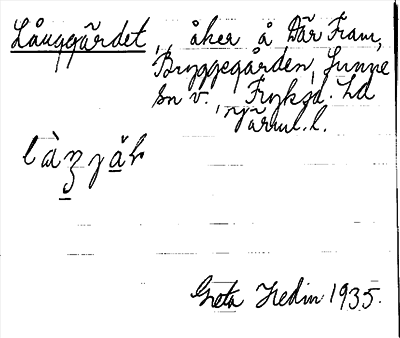 Långgärdet, åker å Där Fram,
Bryggegården, Sunne
sn v., Fryksd. hd
Värml. l.
Greta Hedin 1935.